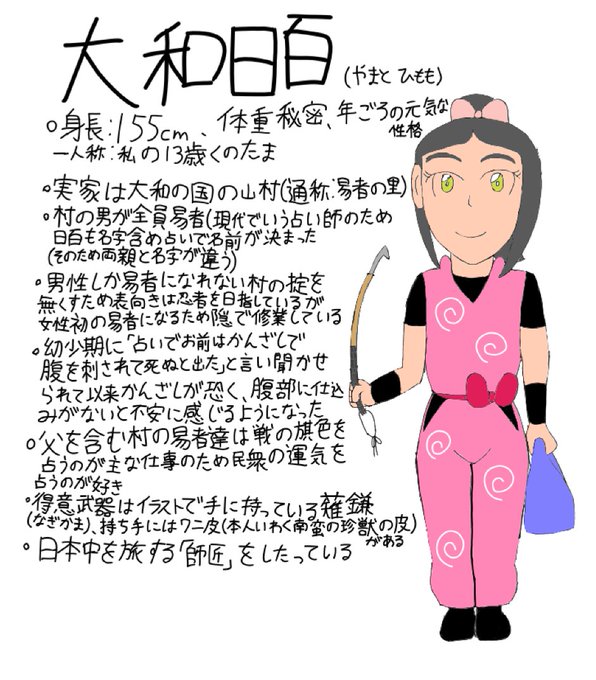 大和日百
(やまと ひもも)
○身長:155cm、体重秘密、年ごろの元気な性格
一人称:私の13歳くのたま
○実家は大和の国の山村(通称:易者の里)
○村の男が全員易者(現代でいう占い師のため
日百も名字含め占いで名前が決まった
(そのため両親と名字が違う)
○男性しか易者になれない村の掟を
無くすため表向きは忍者を目指しているが
女性初の易者になるため隠で修業している
○幼少期に「占いでお前はかんざしで
腹を刺されて死ぬと出た」と言い聞かせ
られて以来かんざしが恐く、腹部に仕込
みがないと不安に感じるようになった
○父を含む村の易者達は戦の旗色を
占うのが主な仕事のため民衆の運気を
占うのが好き
○得意武器はイラストで手に持っている薙鎌
(なぎかま)、持ち手にはワニ皮(本人いわく南蛮の珍獣の皮)がある
○日本中を旅する「師匠」をしたっている